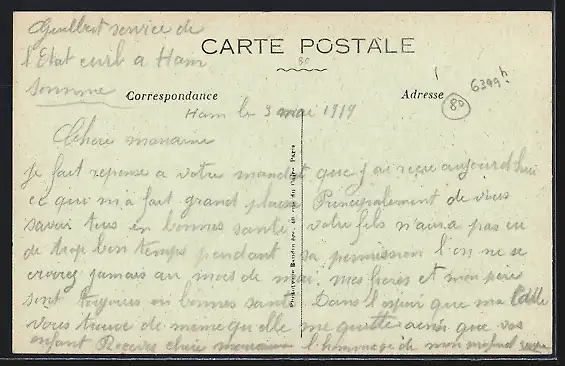 Guilbert service de
l'Etat civil a Ham
Somme
CARTE POSTALE
80
Correspondance
Adresse
6399
80
Ham le 3 mai 1919
Chère marraine
Je fait reponse a votre mandat que j'ai reçue aujourd'hui
ce qui m'a fait grand plaisir Principalement de vous
savoir tous en bonnes santé votre fils n'aura pas eu
de trop bon temps pendant sa permission l'on ne se
jamais au mois de mai. mes frères et mon père
sont toujours en bonnes santé Dans l'espoir que ma
vous trouve de meme qu'elle me quitte ainsi que vos
enfant Recevez chère marraine l'hommage de mon profond